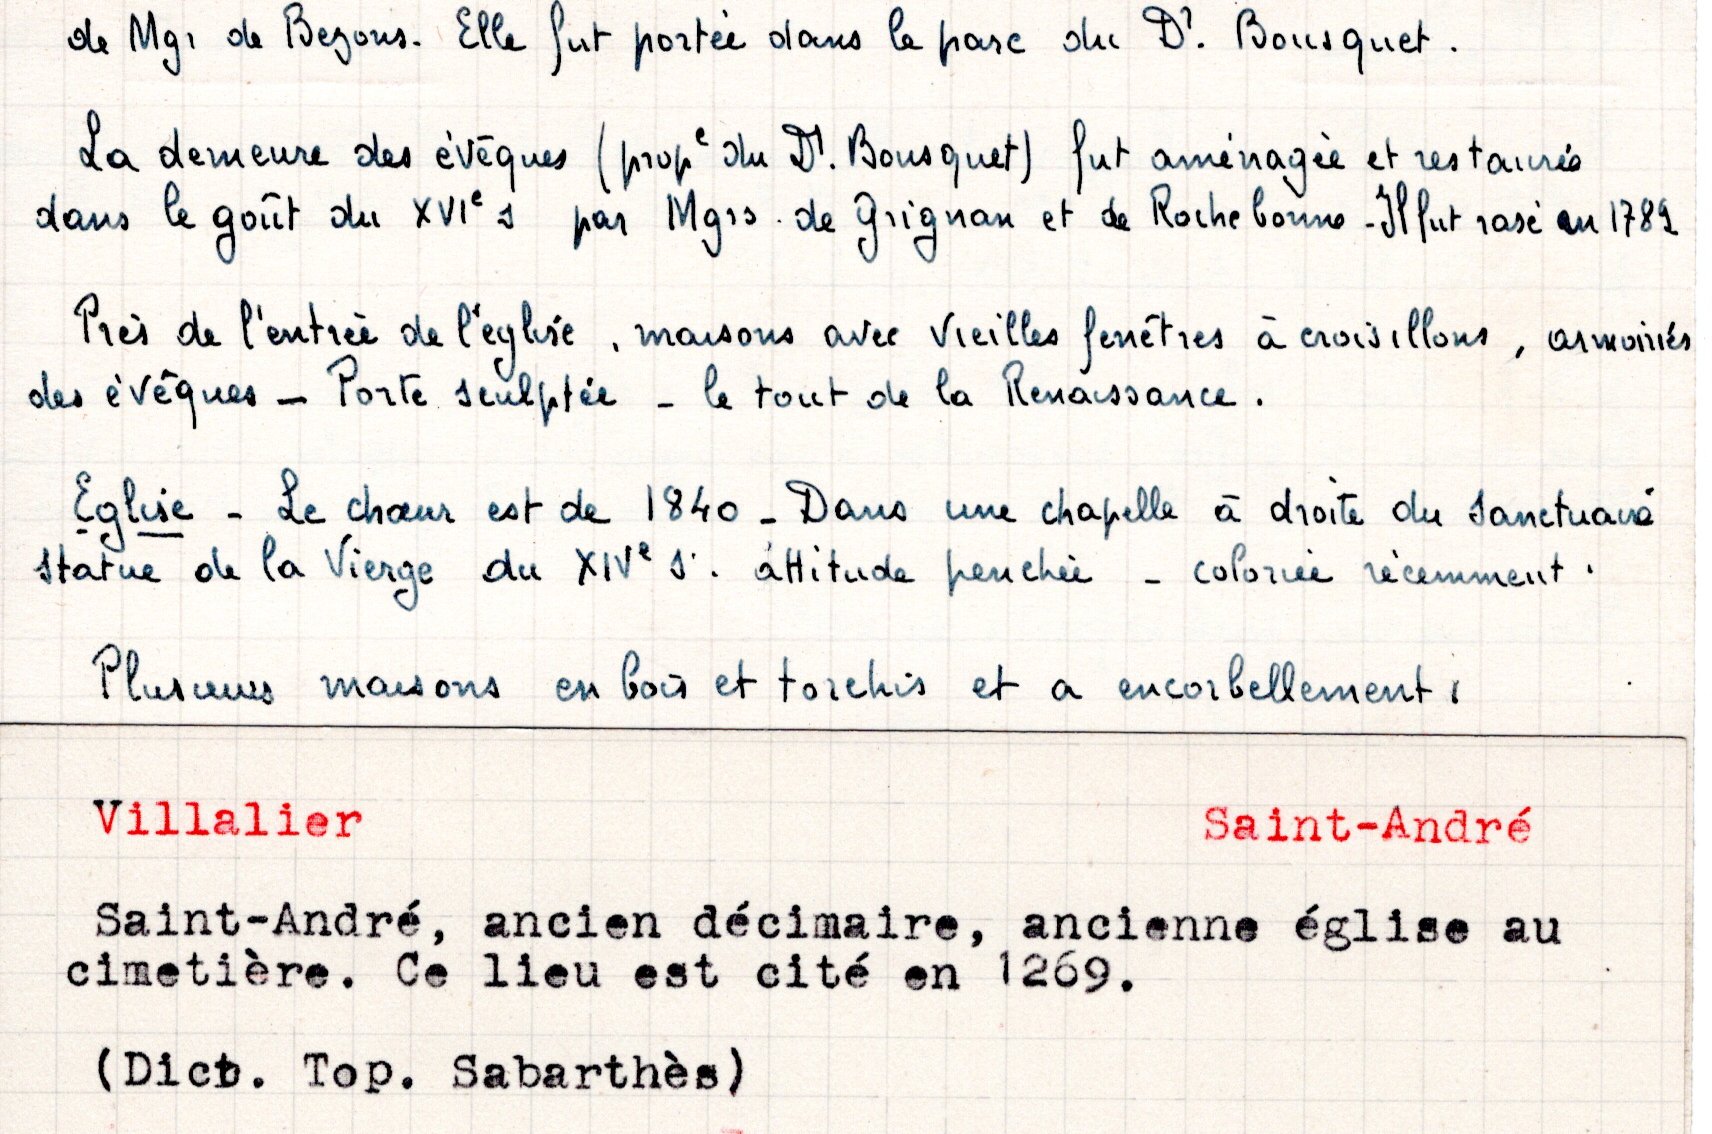 de Mgr de Bezons. Elle fut portée dans le parc du Dr. Bousquet.
La demeure des évêques (prope du Dr. Bousquet) fut aménagée et restaurée
dans le goût du XVIe s par Mgrs. de Grignan et de Rochebonne - Il fut rasé en 1789
Près de l'entrée de l'église, maisons avec vieilles fenêtres à croisillons, armoiries
des évêques - Porte sculptée - le tout de la Renaissance.
Eglise - Le chœur est de 1840 - Dans une chapelle à droite du sanctuaire
statue de la Vierge du XIVe s. attitude penchée - coloriée récemment.
Plusieurs maisons en bois et torchis et a encorbellement.
Villalier Saint-André
Saint-André, ancien décimaire, ancienne église au
cimetière. Ce lieu est cité en 1269.
(Dict. Top. Sabarthès)